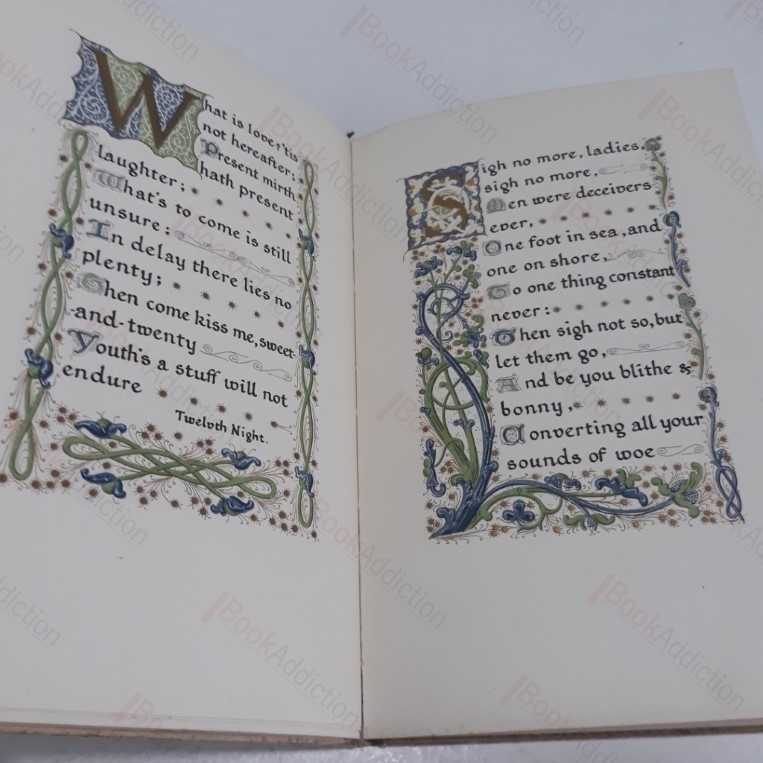 What is love? 'tis
not hereafter;
Present mirth
hath present
laughter;
What's to come is still
unsure:
In delay there lies no
plenty;
Then come kiss me, sweet-
and-twenty
Youth's a stuff will not
endure
Twelvth Night.
Sigh no more, ladies,
sigh no more,
Men were deceivers
ever,
One foot in sea, and
one on shore,
To one thing constant
never:
Then sigh not so, but
let them go,
And be you blithe &
bonny,
Converting all your
sounds of woe
BookAddiction